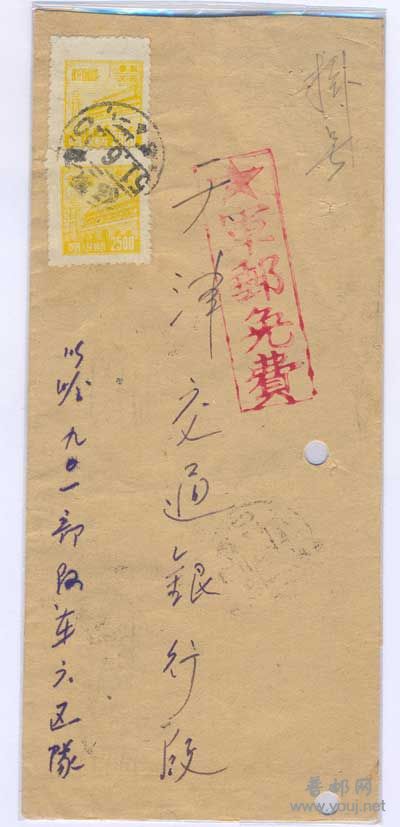 掛号
★軍郵免費
天津交通銀行啟
哈九〇一部隊第六区隊
2500
普邮网
www.youj.net